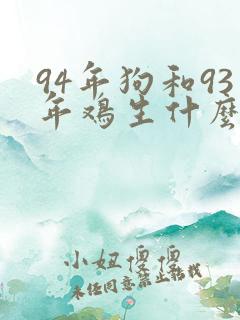 94年狗和93
年鸡生什麽
小妞儍儍
未经同意禁止转载